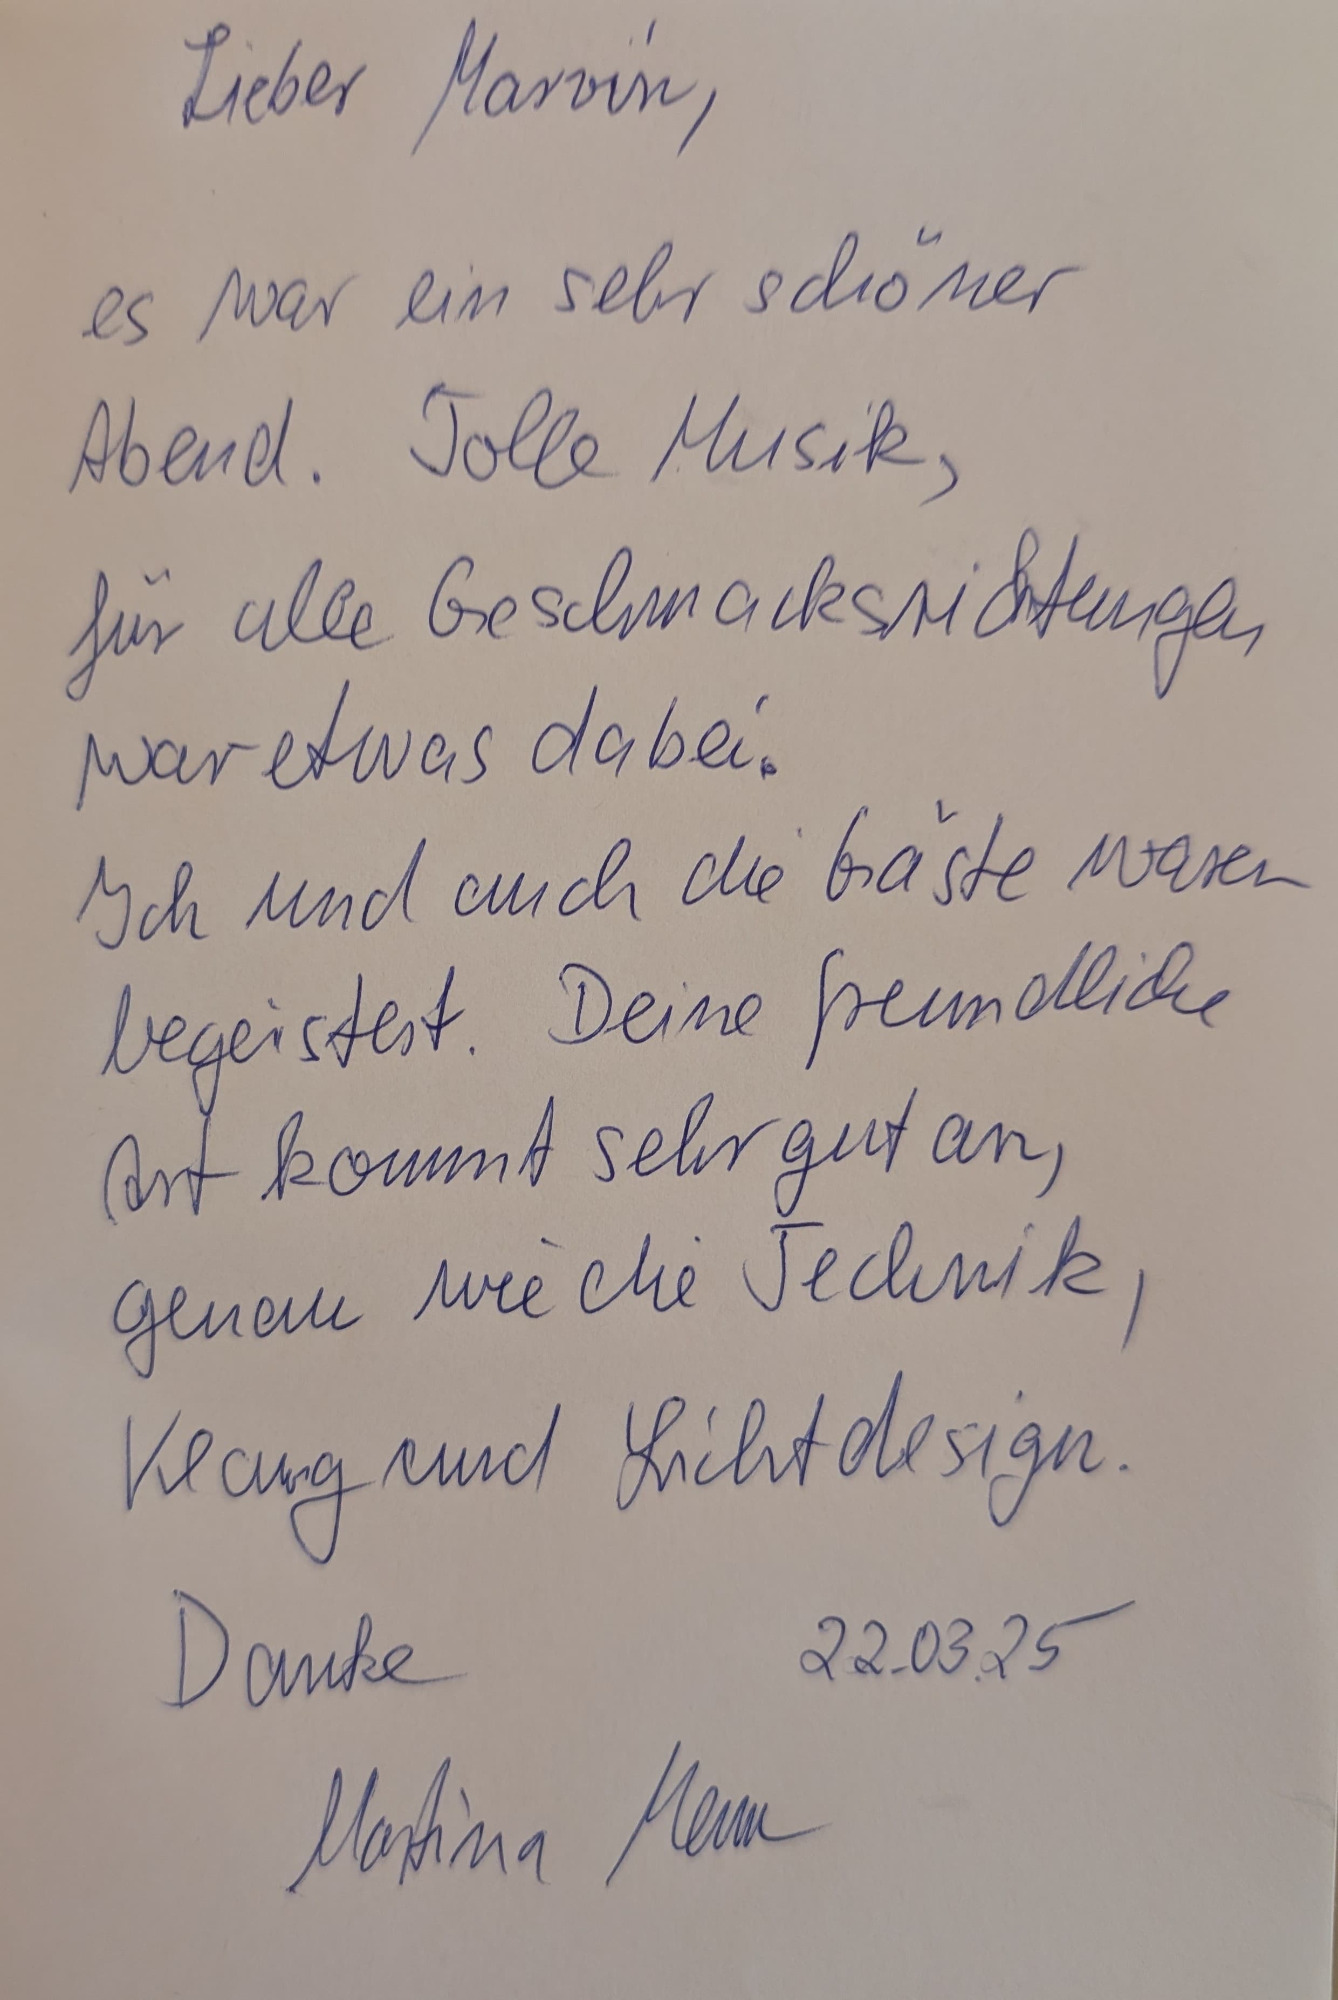 Lieber Marvin,
es war ein sehr schöner
Abend. Tolle Musik,
für alle Geschmacksrichtungen
war etwas dabei.
Ich und auch die Gäste waren
begeistert. Deine freundliche
Art kommt sehr gut an,
genau wie die Technik,
Klang und Lichtdesign.
Danke 22.03.25
Martina